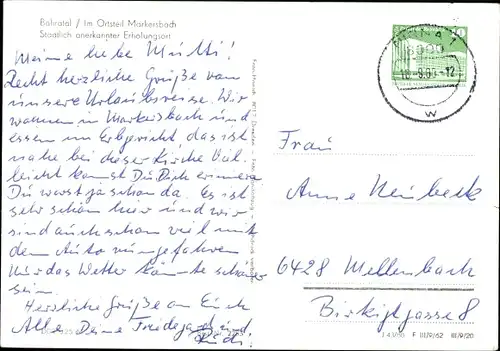 Bahratal / Im Ortsteil Markersbach
Staatlich anerkannter Erholungsort
Meine liebe Mutti!
Recht herzliche Grüße von
unsere Urlaubsreise. Wir
wohnen in Markersbach und
essen im Erbgericht das ist
nahe bei dieser Kirche Viel
leicht kannst Du Dich erinnern
Du warst ja schon da. Es ist
sehr schön hier und wir
sind auch schon viel mit
dem Auto rumgefahren
Nur das Wetter könnte schöner
sein.
Herzliche Grüße an Euch
Alle Deine Friedegard und
Rudi
10
-12
W
Frau
Anne Neubeck
6428 Mellenbach
Birkigtgasse 8
III/9/62 III/9/20